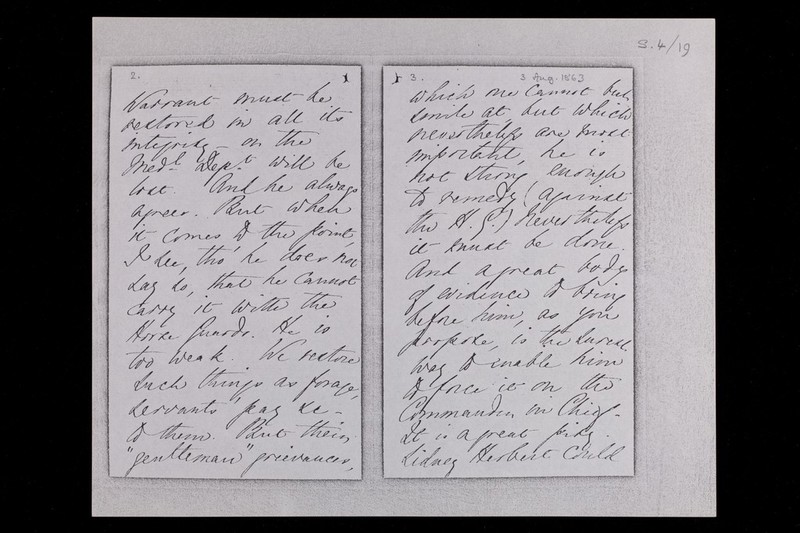 S.4/19
2.
Warrant must be
restored in all its
integrity - or the
Medl. Dept. will be
lost. And he always
agrees. But when
it comes to the point,
I see, tho' he does not
say so, that he cannot
carry it with the
Horse Guards. He is
too weak. We restore
such things as forage,
servants' pay &c -
to them. But their
"gentleman" grievances,
3.
3 Aug. 1863
which one cannot but
smile at, but which
nevertheless are most
important, he is
not strong enough
to remedy (against
the H. G.) Nevertheless
it must be done.
And a great body
of evidence to bring
before him, as you
propose, is the surest
way to enable him
to force it on the
Commander in Chief.
It is a great pity.
Sidney Herbert could